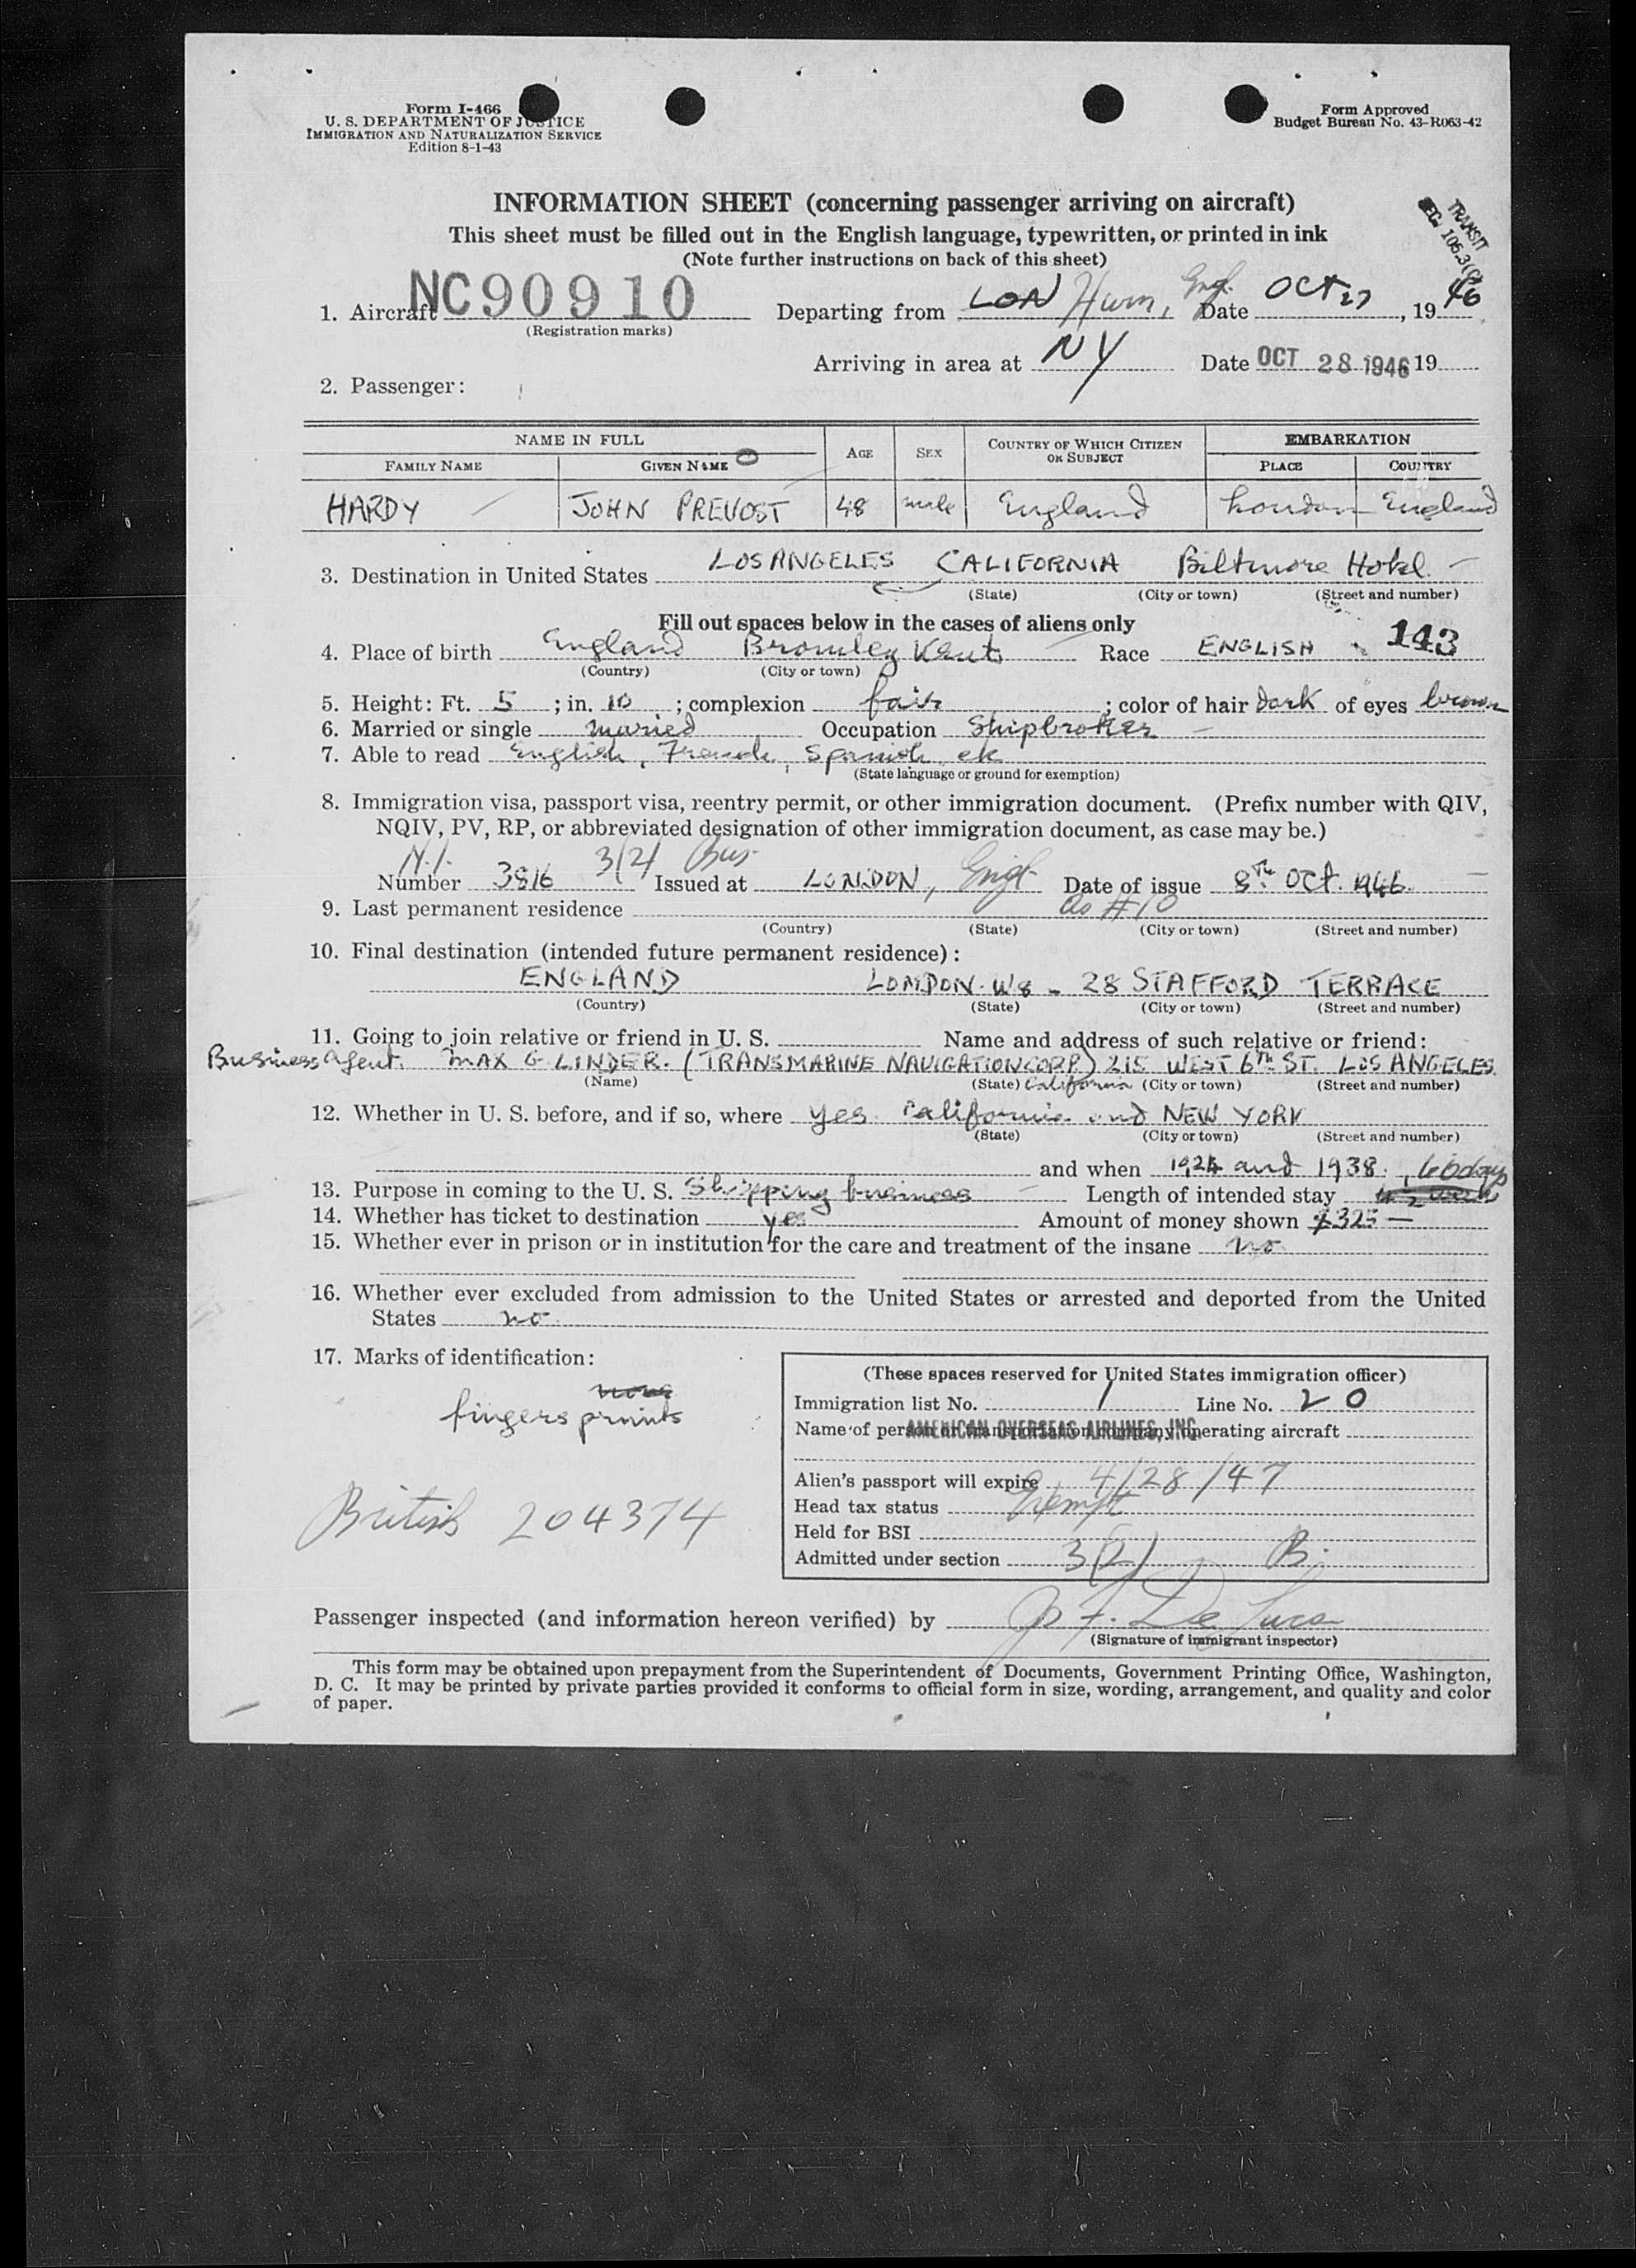 Form I-466
U. S. DEPARTMENT OF JUSTICE
IMMIGRATION AND NATURALIZATION SERVICE
Edition 8-1-43
Form Approved
Budget Bureau No. 43-R063-42
INFORMATION SHEET (concerning passenger arriving on aircraft)
This sheet must be filled out in the English language, typewritten, or printed in ink
(Note further instructions on back of this sheet)
TRANSIT
SEC. 105.3(C)
1. Aircraft NC90910 Departing from LON Hurn, Engl. Date OCT 27, 1946
(Registration marks)
Arriving in area at NY Date OCT 28 1946 19
2. Passenger:
NAME IN FULL AGE SEX COUNTRY OF WHICH CITIZEN OR SUBJECT EMBARKATION
FAMILY NAME GIVEN NAME PLACE COUNTRY
HARDY JOHN PREVOST 48 male England London England
3. Destination in United States LOS ANGELES CALIFORNIA Biltmore Hotel
(State) (City or town) (Street and number)
Fill out spaces below in the cases of aliens only
4. Place of birth England Bromley Kent Race ENGLISH 143
(Country) (City or town)
5. Height: Ft. 5; in. 10; complexion fair; color of hair Dark of eyes brown
6. Married or single maried Occupation Shipbroker
7. Able to read English, French, Spanish etc
(State language or ground for exemption)
8. Immigration visa, passport visa, reentry permit, or other immigration document. (Prefix number with QIV,
NQIV, PV, RP, or abbreviated designation of other immigration document, as case may be.)
3(2) Bus.
Number 3816 Issued at LONDON, Engl Date of issue 8TH OCT. 1946.
9. Last permanent residence as #10
(Country) (State) (City or town) (Street and number)
10. Final destination (intended future permanent residence):
ENGLAND LONDON W8 - 28 STAFFORD TERRACE
(Country) (State) (City or town) (Street and number)
11. Going to join relative or friend in U. S. Name and address of such relative or friend:
Business Agent. MAX G LINDER. (TRANSMARINE NAVIGATION CORP) 215 WEST 6TH ST. LOS ANGELES
(Name) (State) California (City or town) (Street and number)
12. Whether in U. S. before, and if so, where yes California and NEW YORK
(State) (City or town) (Street and number)
and when 1924 and 1938.
13. Purpose in coming to the U. S. Shipping business Length of intended stay 60 days
14. Whether has ticket to destination yes Amount of money shown $325 —
15. Whether ever in prison or in institution for the care and treatment of the insane no
16. Whether ever excluded from admission to the United States or arrested and deported from the United
States no
17. Marks of identification:
none
fingers prints
British 204374
(These spaces reserved for United States immigration officer)
Immigration list No. 1 Line No. 20
Name of person or transportation company operating aircraft AMERICAN OVERSEAS AIRLINES, INC
Alien's passport will expire 4/28/47
Head tax status Exempt
Held for BSI
Admitted under section 3(2) B.
Passenger inspected (and information hereon verified) by F. De Luca
(Signature of immigrant inspector)
This form may be obtained upon prepayment from the Superintendent of Documents, Government Printing Office, Washington,
D. C. It may be printed by private parties provided it conforms to official form in size, wording, arrangement, and quality and color
of paper.